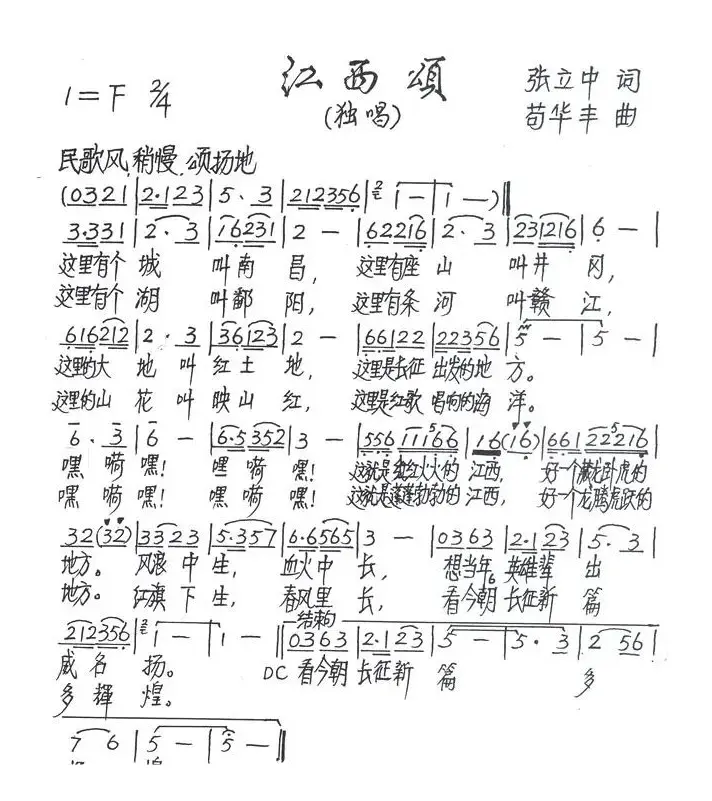 江西颂
(独唱)
1=F 2/4
张立中 词
苟华丰 曲
民歌风 稍慢 颂扬地
(0321|2·123|5、3|212356|1 —|1 —)‖
3·331|2·3|16231|2 —|62216|2·3|231216|6 —|
这里有个 城 叫南昌, 这里有座 山 叫井冈,
这里有个 湖 叫鄱阳, 这里有条 河 叫赣江,
616212|2·3|36123|2 —|66122|22356|5 —|5 —|
这里的大 地 叫 红土 地, 这里是长征 出发的地 方。
这里的山 花 叫 映山 红, 这里是红歌 唱响的海 洋。
6·3|6 —|6·5352|3 —|556 11166|16(16)|661 22216|
嘿 嗬 嘿! 嘿 嗬 嘿! 这就是红红火火的 江西, 好一个藏龙卧虎的
嘿 嗬 嘿! 嘿 嗬 嘿! 这就是蓬蓬勃勃的 江西, 好一个龙腾虎跃的
32(32)|3323|5·357|6·6565|3 —|0363|2·123|5·3|
地方。 风浪 中 生, 血火中 长, 想当年 英雄辈 出
地方。 红旗 下 生, 春风里 长, 看今朝 长征新 篇
结束句
212356|1 —|1 —‖0363|2·123|5 —|5·3|2 56|
威 名 扬。 DC 看今朝 长征新 篇 多
多 辉 煌。
7 6|5 —|5 —‖